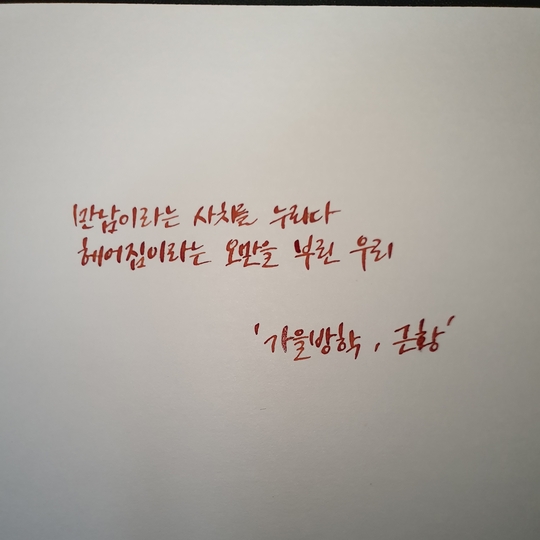 만남이라는 사치를 누리다
헤어짐이라는 오만을 부린 우리
'가을방학, 근황'